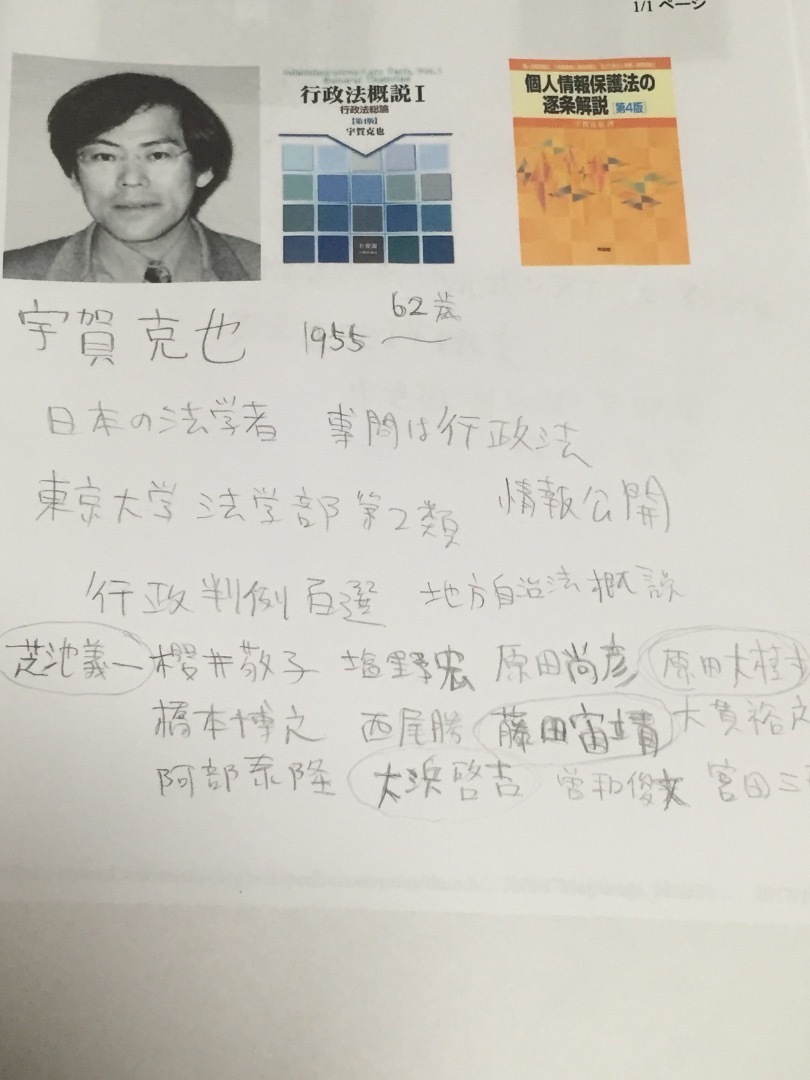 1/1 ページ
行政法概説 I
行政法総論
[第4版]
宇賀克也
有斐閣
個人情報保護法の
逐条解説 [第4版]
宇賀克也 著
有斐閣
宇賀克也 1955〜 62歳
日本の法学者 専門は行政法
東京大学 法学部 第2類 情報公開
行政判例百選 地方自治法概説
芝池義一 櫻井敬子 塩野宏 原田尚彦 原田大樹
橋本博之 西尾勝 藤田宙靖 大貫裕之
阿部泰隆 大浜啓吉 曽和俊文 宮田三